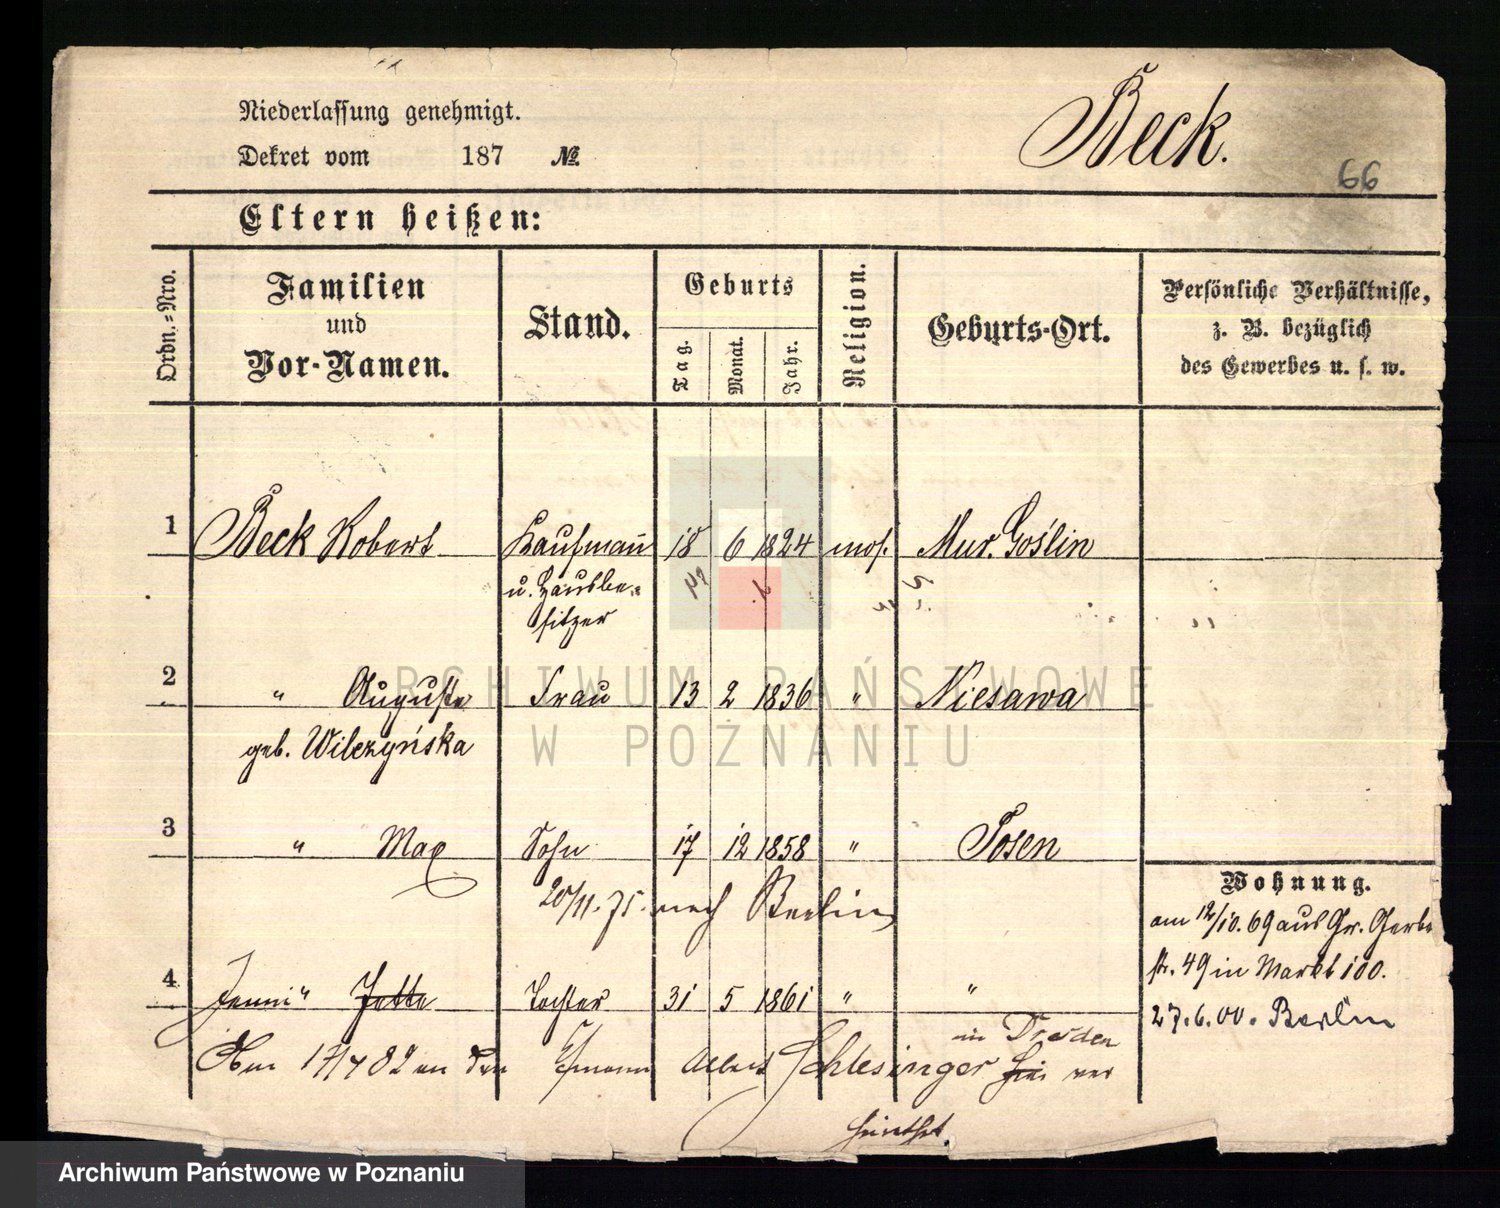 Niederlassung genehmigt.
Dekret vom 187 №.
Beck.
66
Eltern heißen:
Ordn.=Nro.
Familien
und
Vor-Namen.
Stand.
Geburts
Tag.
Monat.
Jahr.
Religion.
Geburts-Ort.
Persönliche Verhältnisse,
z. B. bezüglich
des Gewerbes u. s. w.
1 Beck Robert Kaufmañ 18 6 1824 mos. Mur. Goślin
u. Hausbe-
sitzer
2 " Auguste Frau 13 2 1836 " Niesawa
geb. Wilczyńska
3 " Max Sohn 17 12 1858 " Posen
20/11. 75. nach Berlin
4 Jenni " Jette Tochter 31 5 1861 " "
in Dresden
Am 17/4 82 an den Ehmann Albert Schlesinger hier ver
heirathet.
Wohnung.
am 12/10. 69 aus Gr. Gerbe
str. 49 in Markt 100.
27.6.00. Berlin
ARCHIWUM PAŃSTWOWE
W POZNANIU
Archiwum Państwowe w Poznaniu